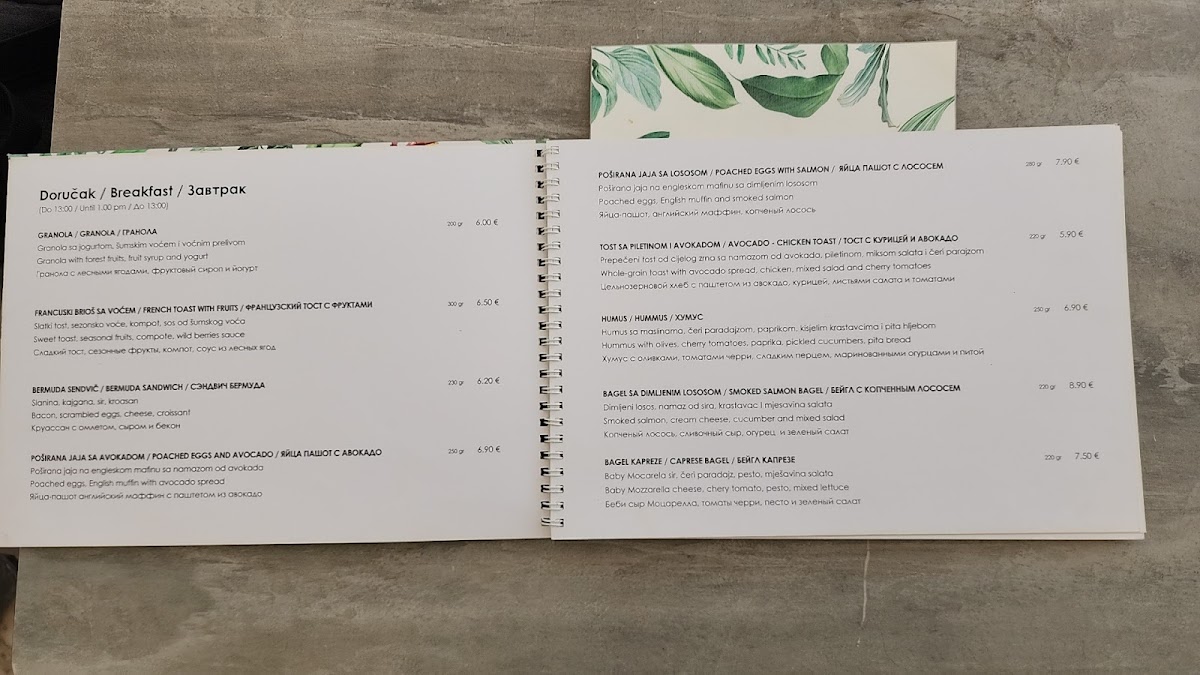 Doručak / Breakfast / Завтрак
(Do 13:00 / Until 1.00 pm / До 13:00)
GRANOLA / GRANOLA / ГРАНОЛА 200 gr 6.00 €
Granola sa jogurtom, šumskim voćem i voćnim prelivom
Granola with forest fruits, fruit syrup and yogurt
Гранола с лесными ягодами, фруктовый сироп и йогурт
FRANCUSKI BRIOŠ SA VOĆEM / FRENCH TOAST WITH FRUITS / ФРАНЦУЗСКИЙ ТОСТ С ФРУКТАМИ 300 gr 6.50 €
Slatki tost, sezonsko voće, kompot, sos od šumskog voća
Sweet toast, seasonal fruits, compote, wild berries sauce
Сладкий тост, сезонные фрукты, компот, соус из лесных ягод
BERMUDA SENDVIČ / BERMUDA SANDWICH / СЭНДВИЧ БЕРМУДА 230 gr 6.20 €
Slanina, kajgana, sir, kroasan
Bacon, scrambled eggs, cheese, croissant
Круассан с омлетом, сыром и бекон
POŠIRANA JAJA SA AVOKADOM / POACHED EGGS AND AVOCADO / ЯЙЦА ПАШОТ С АВОКАДО 250 gr 6.90 €
Poširana jaja na engleskom mafinu sa namazom od avokada
Poached eggs, English muffin with avocado spread
Яйца-пашот английский маффин с паштетом из авокадо
POŠIRANA JAJA SA LOSOSOM / POACHED EGGS WITH SALMON / ЯЙЦА ПАШОТ С ЛОСОСЕМ 280 gr 7.90 €
Poširana jaja na engleskom mafinu sa dimljenim lososom
Poached eggs, English muffin and smoked salmon
Яйца-пашот, английский маффин, копченый лосось
TOST SA PILETINOM I AVOKADOM / AVOCADO - CHICKEN TOAST / ТОСТ С КУРИЦЕЙ И АВОКАДО 220 gr 5.90 €
Prepečeni tost od cijelog zrna sa namazom od avokada, piletinom, miksom salata i čeri parajzom
Whole-grain toast with avocado spread, chicken, mixed salad and cherry tomatoes
Цельнозерновой хлеб с паштетом из авокадо, курицей, листьями салата и томатами
HUMUS / HUMMUS / ХУМУС 250 gr 6.90 €
Humus sa maslinama, čeri paradajzom, paprikom, kisjelim krastavcima i pita hljebom
Hummus with olives, cherry tomatoes, paprika, pickled cucumbers, pita bread
Хумус с оливками, томатами черри, сладким перцем, маринованными огурцами и питой
BAGEL SA DIMLJENIM LOSOSOM / SMOKED SALMON BAGEL / БЕЙГЛ С КОПЧЕННЫМ ЛОСОСЕМ 220 gr 8.90 €
Dimljeni losos, namaz od sira, krastavac I mjesavina salata
Smoked salmon, cream cheese, cucumber and mixed salad
Копченый лосось, сливочный сыр, огурец и зеленый салат
BAGEL KAPREZE / CAPRESE BAGEL / БЕЙГЛ КАПРЕЗЕ 220 gr 7.50 €
Baby Mocarela sir, čeri paradajz, pesto, mješavina salata
Baby Mozzarella cheese, chery tomato, pesto, mixed lettuce
Беби сыр Моцарелла, томаты черри, песто и зеленый салат